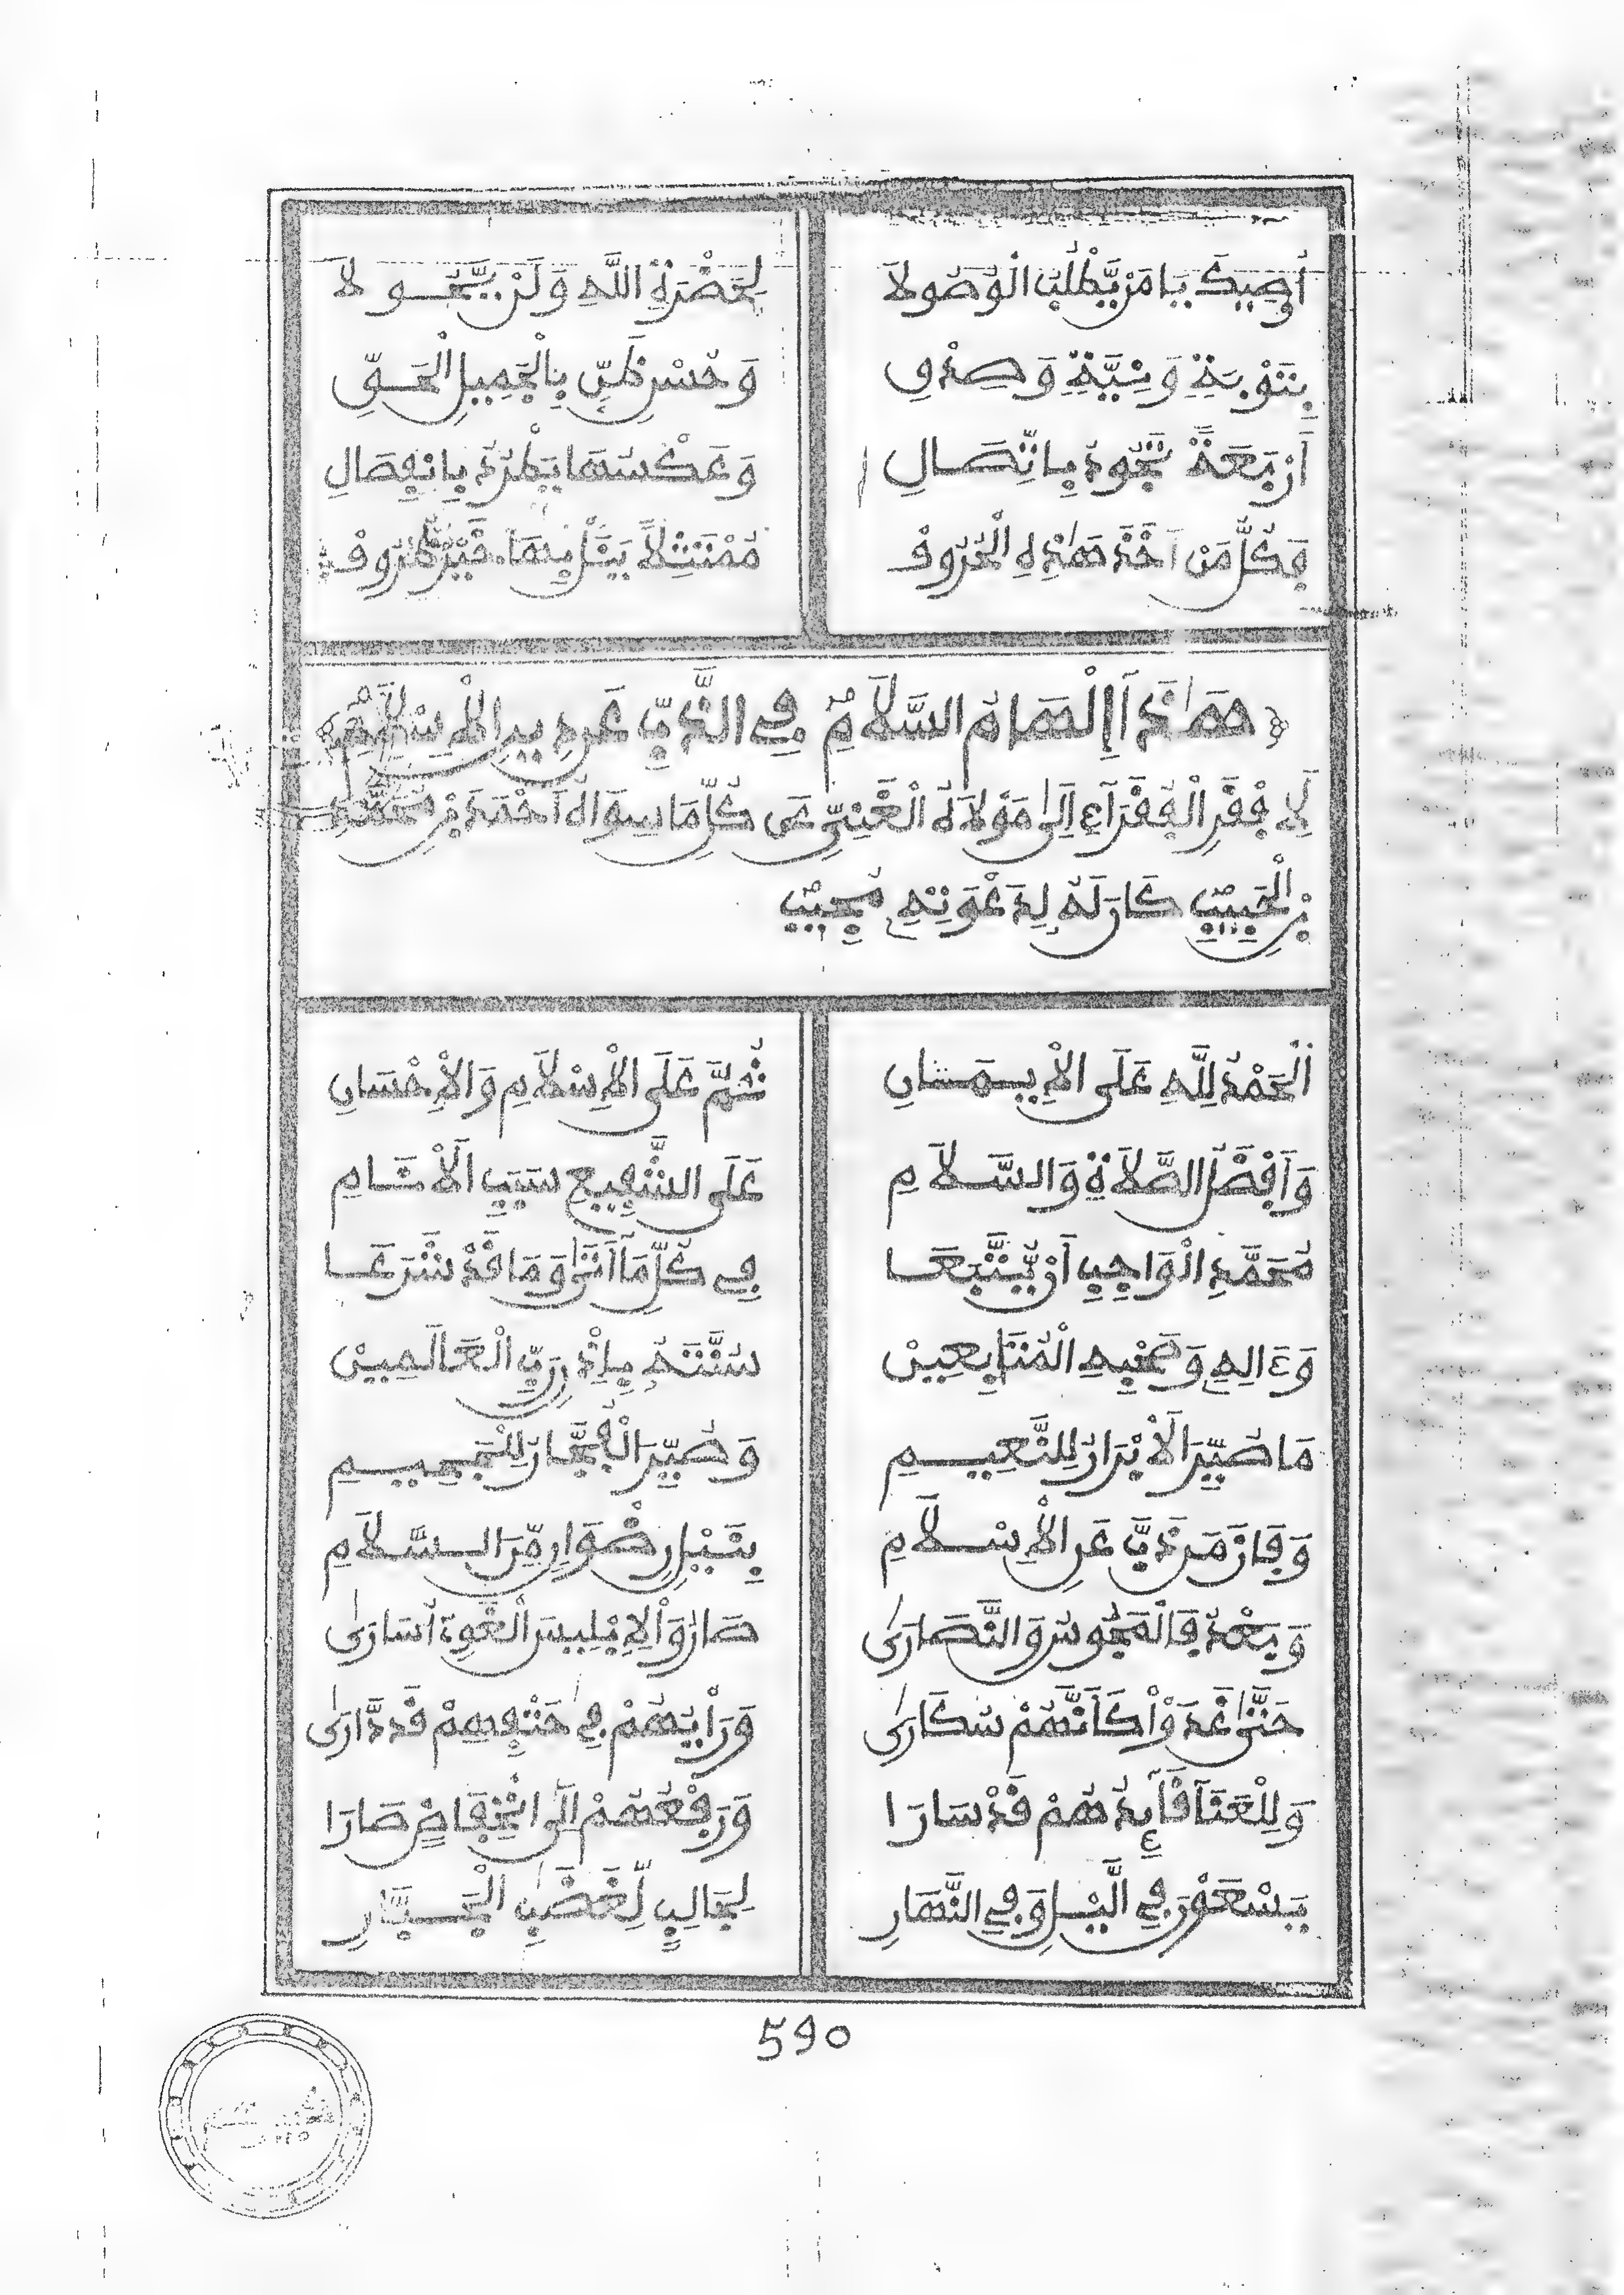 أُوصِيكَ يَا مَنْ يَّطْلُبُ الْوُصُولَا لِحَضْرَةِ اللَّهِ وَلَنْ يَّحُولَا
بِتَوْبَةٍ وَنِيَّةٍ وَصِدْقِ وَحُسْنِ ظَنٍّ بِالْجَمِيلِ الْحَقِّ
أَرْبَعَةً تَجُودُ بِاتِّصَالِ وَعَكْسُهَا يَطْرُدُ بِانْفِصَالِ
فَكُلُّ مَنْ أَخَذَ هَٰذِهِ الْحُرُوفْ مُمْتَثِلًا يَنَلْ بِهَا خَيْرَ
هَٰذَا إِلْهَامُ السَّلَامِ فِي الذَّبِّ عَن دِينِ الْإِسْلَامِ
لِأَفْقَرِ الْفُقَرَآءِ إِلَىٰ مَوْلَاهُ الْغَنِيِّ عَن كُلِّ مَا سِوَاهُ أَحْمَدَ بْنِ مُحَمَّدِ
بْنِ الْحَبِيبِ كَانَ لَهُ لِدَعْوَتِهِ مُجِيبٌ
الْحَمْدُ لِلَّهِ عَلَى الْإِيمَانِ ثُمَّ عَلَى الْإِسْلَامِ وَالْإِحْسَانِ
وَأَفْضَلُ الصَّلَاةِ وَالسَّلَامِ عَلَى الشَّفِيعِ سَبَبِ الْأَنَامِ
مُحَمَّدِ الْوَاجِبِ أَنْ يُّتَّبَعَا فِي كُلِّ مَا أَتَىٰ وَمَا قَدْ شَرَعَا
وَءَالِهِ وَصَحْبِهِ الْمُتَابِعِينْ سُنَّتَهُ بِإِذْنِ رَبِّ الْعَالَمِينْ
مَا صُيِّرَ الْأَبْرَارُ لِلنَّعِيمِ وَصُيِّرَ الْفُجَّارُ لِلْجَحِيمِ
وَفَازَ مَن ذَبَّ عَنِ الْإِسْلَامِ بِنَيْلِ رِضْوَانٍ مِّنَ السَّلَامِ
وَبَعْدُ فَالْمَجُوسُ وَالنَّصَارَىٰ صَارُوا لِإِبْلِيسَ الْغَوِي أُسَارَىٰ
حَتَّىٰ غَدَوْا كَأَنَّهُمْ سُكَارَىٰ وَرَأْيُهُمْ فِي حَتْفِهِمْ قَد دَّارَىٰ
وَلِلْعَنَا قَآئِدُهُمْ قَدْ سَارَا وَرَفْعُهُمْ إِلَى انْخِفَاضٍ صَارَا
يَسْعَوْنَ فِي الَّيْلِ وَفِي النَّهَارِ لِجَالِبٍ لِّغَضَبِ الْجَبَّارِ
590